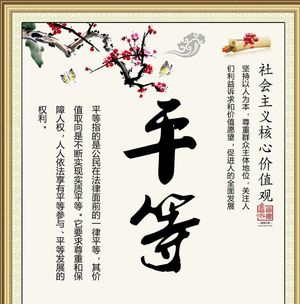 社会主义核心价值观
坚持以人为本,尊重群众主体地位,关注人
们利益诉求和价值愿望,促进人的全面发展
平等
平等指的是公民在法律面前的一律平等,其价
值取向是不断实现实质平等。它要求尊重和保
障人权,人人依法享有平等参与、平等发展的
权利。